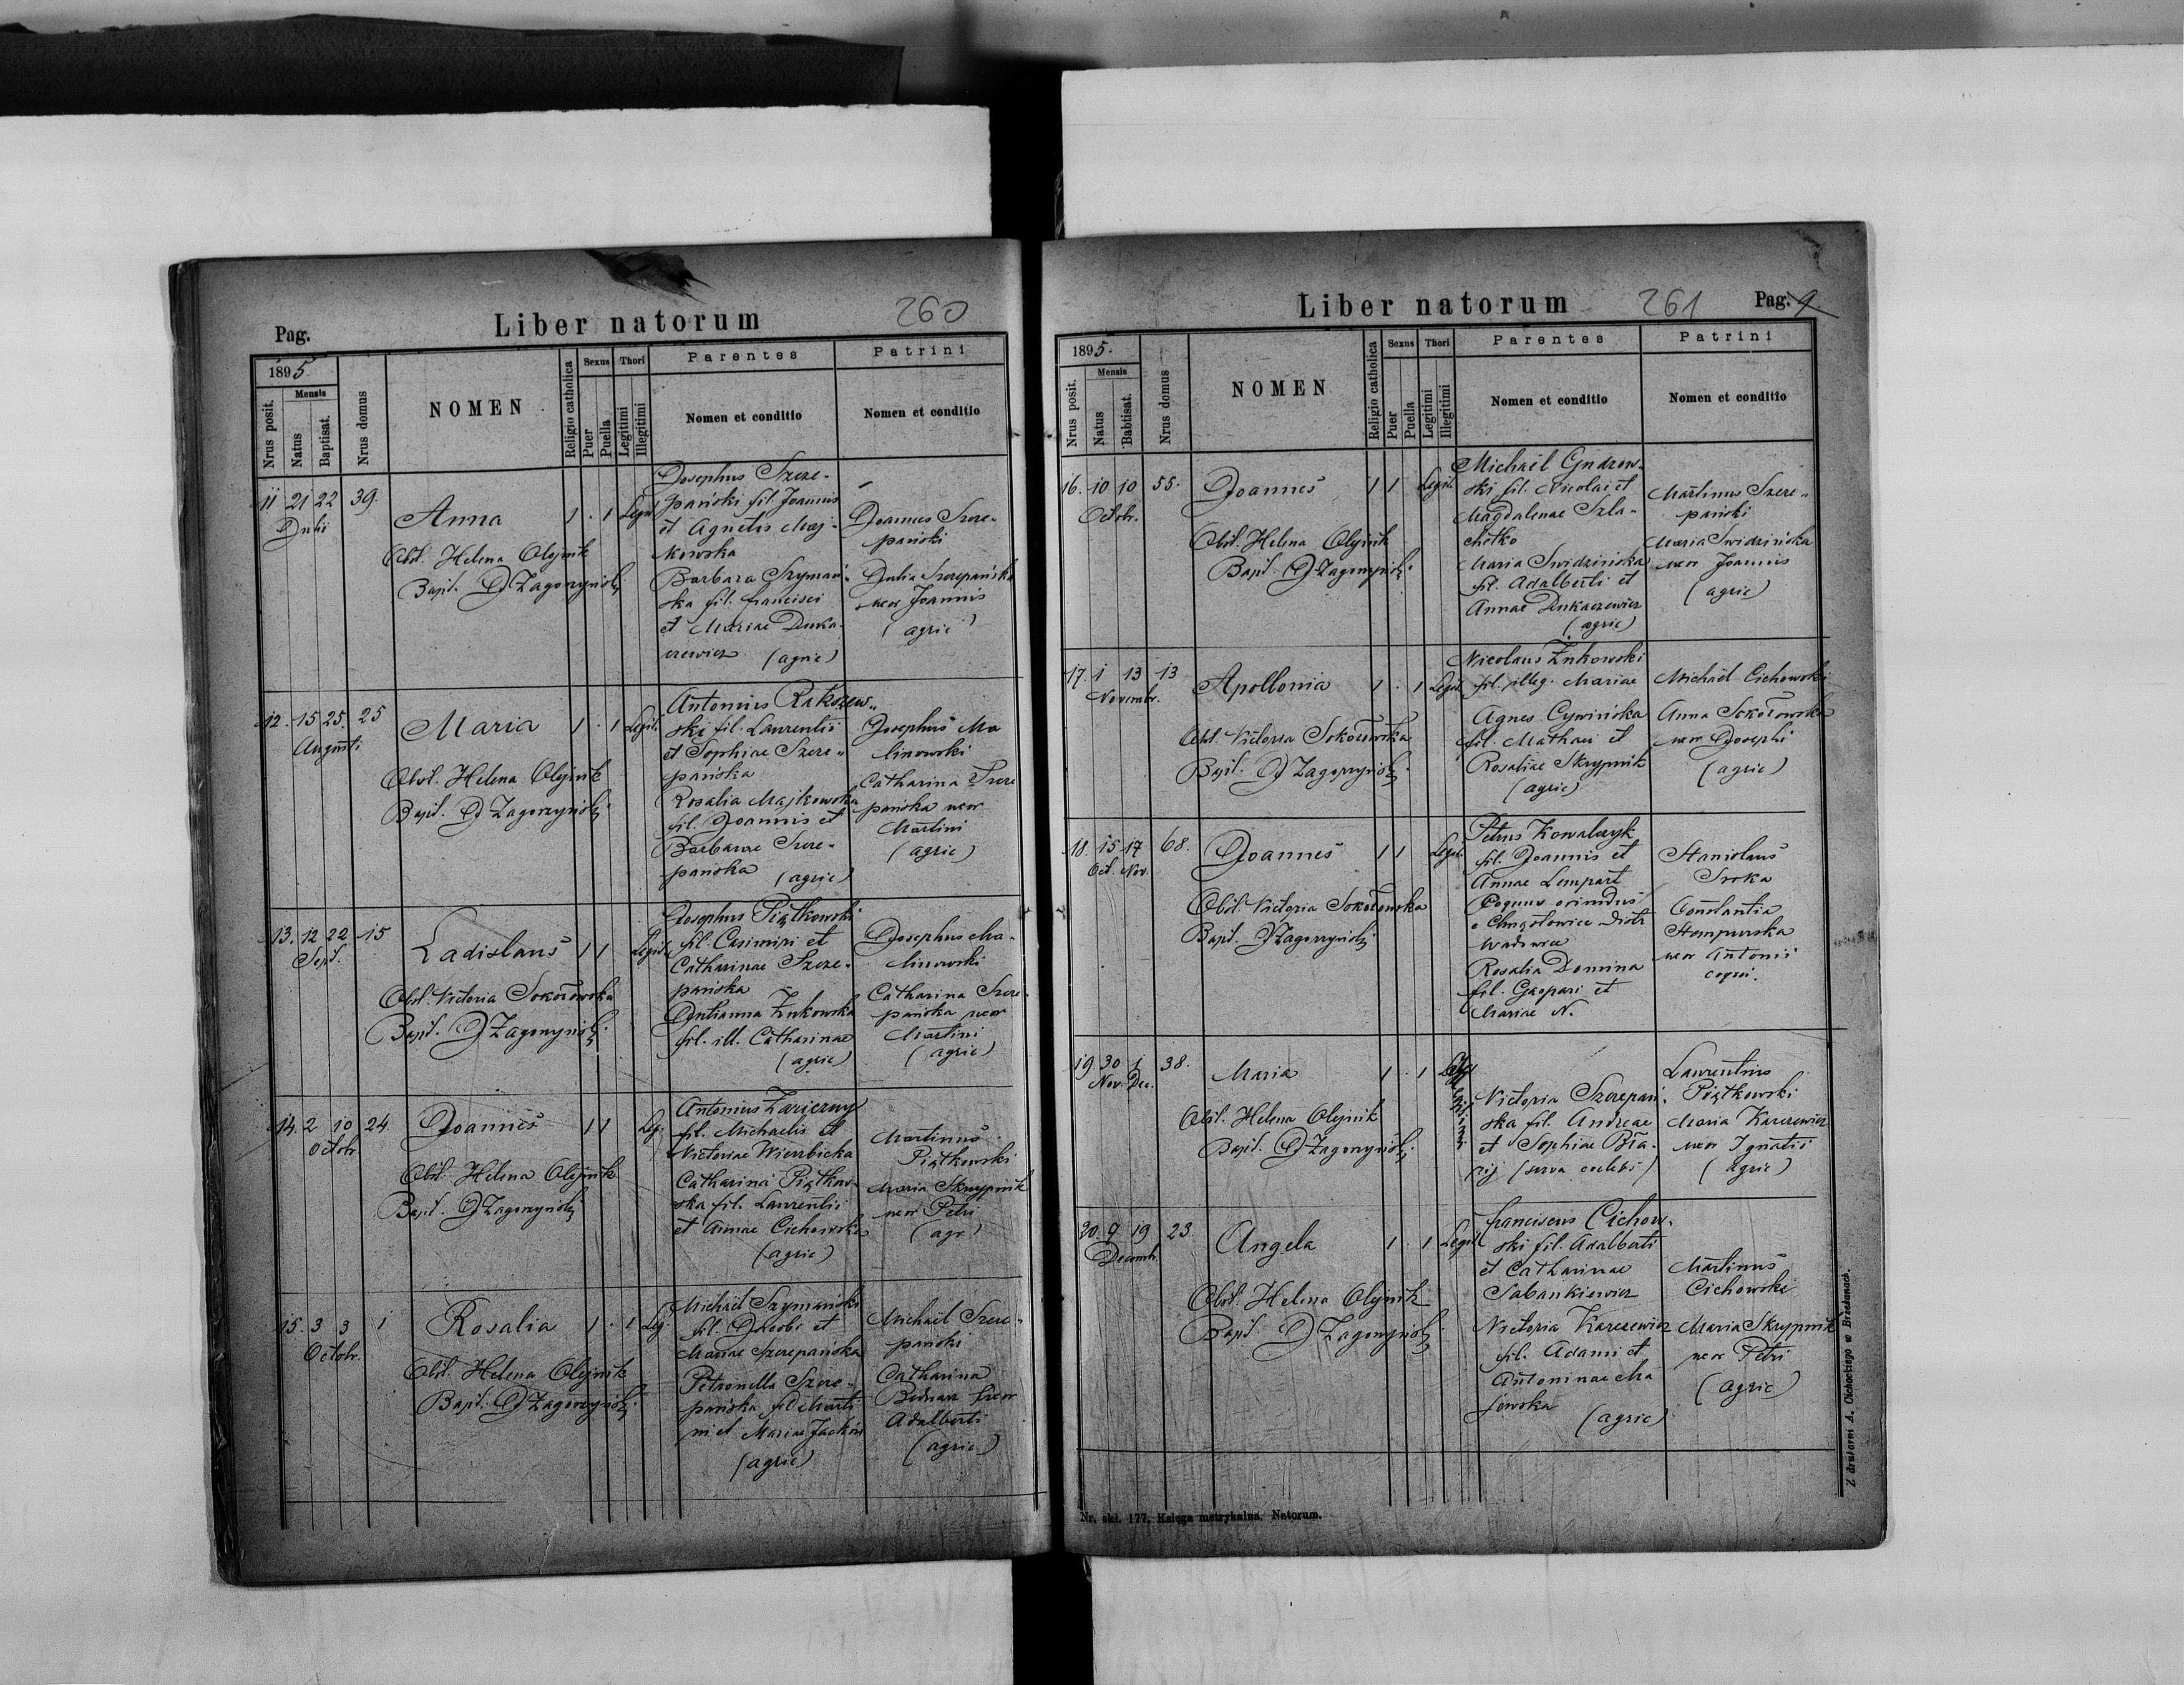 Pag.
Liber natorum
260
1895
Nrus posit.
Mensis
Natus
Baptisat.
Nrus domus
NOMEN
Religio catholica
Sexus
Puer
Puella
Thori
Legitimi
Illegitimi
Parentes
Nomen et conditio
Patrini
Nomen et conditio
11 21 22 39.
Julii
Anna
1 . 1 Legit.
Obst. Helena Olejnik
Bapt. J Zagorzyński
Josephus Szcze-
pański fil. Joannis
et Agnetis Maj-
kowska
Barbara Szymań-
ska fil. Francisci
et Mariae Duka-
czewicz (agric)
Joannes Szcze-
pański
Julia Szczepańska
uxor Joannis
(agric)
12. 15 25. 25
Augusti
Maria
1 . 1 Legit.
Obst. Helena Olejnik
Bapt. J Zagorzyński
Antonius Rakszew-
ski fil. Laurentii
et Sophiae Szcze-
pańska
Rosalia Majkowska
fil. Joannis et
Barbarae Szcze-
pańska (agric)
Josephus Ma
linowski
Catharina Szcze
pańska uxor
Martini
(agric)
13. 12 22 15
Sept.
Ladislaus
1 1 Legit.
Obst. Victoria Sokołowska
Bapt. J Zagorzyński
Josephus Piątkowski
fil. Casimiri et
Catharinae Szcze-
pańska
Julianna Żukowska
fil. ill. Catharinae
(agric)
Josephus Ma-
linowski
Catharina Szcze-
pańska uxor
Martini
(agric)
14. 2 10 24.
Octobr.
Joannes
1 1 Leg.
Obst. Helena Olejnik
Bapt. J Zagorzyński
Antonius Zariczny
fil. Michaelis et
Victoriae Wierzbicka
Catharina Piątkow-
ska fil. Laurentii
et Annae Cichowska
(agric)
Martinus
Piątkowski
Maria Skrypnik
uxor Petri
(agr)
15. 3 3 1
Octobr.
Rosalia
1 . 1 Leg.
Obst. Helena Olejnik
Bapt. J Zagorzyński
Michaël Szymański
fil. Jacobi et
Mariae Szczepańska
Petronella Szcze-
pańska fil Marti
ni et Mariae Jacków
(agric)
Michaël Szcze-
pański
Catharina
Bednarz uxor
Adalberti
(agric)
Liber natorum
261
Pag. 9.
1895.
Nrus posit.
Mensis
Natus
Babtisat.
Nrus domus
NOMEN
Religio catholica
Sexus
Puer
Puella
Thori
Legitimi
Illegitimi
Parentes
Nomen et conditio
Patrini
Nomen et conditio
16. 10 10 55.
Octobr.
Joannes
1 1 Legit.
Obst. Helena Olejnik
Bapt. J Zagorzyński
Michaël Gudzow-
ski fil. Nicolai et
Magdalenae Szla-
chetko
Maria Swidzińska
fil. Adalberti et
Annae Dukaczewicz
(agric)
Martinus Szcze-
pański
Maria Swidzińska
uxor Joannis
(agric)
17. 1 13 13
Novembr.
Apollonia
1 . 1 Legit.
Obst. Victoria Sokołowska
Bapt. J Zagorzyński
Nicolaus Żukowski
fil. illeg. Mariae
Agnes Cywińska
fil. Mathaei et
Rosaliae Skrypnik
(agric)
Michaël Cichowski
Anna Sokołowska
uxor Josephi
(agric)
18. 15 17 68.
Oct. Nov.
Joannes
1 1 Legit.
Obst. Victoria Sokołowska
Bapt. J Zagorzyński
Petrus Kowalczyk
fil. Joannis et
Annae Lempart
Coquus oriundus
Wadowice
Rosalia Domina
fil. Gaspari et
Mariae N.
Stanislaus
Sroka
Constantia
Stempurska
uxor Antonii
coqui.
19. 30 1 38.
Nov. Dec.
Maria
1 . 1
Illegitimi
Obst. Helena Olejnik
Bapt. J Zagorzyński
Victoria Szczepań-
ska fil. Andreae
et Sophiae Bła-
żij (serva coelebs)
Laurentius
Piątkowski
Maria Karczewicz
uxor Ignatii
(agric)
20. 9 19 23.
Decemb.
Angela
1 . 1 Legit.
Obst. Helena Olejnik
Bapt. J Zagorzyński
Franciscus Cichow-
ski fil. Adalberti
et Catharinae
Sabankiewicz
Victoria Karczewicz
fil. Adami et
Antoninae Ma
jewska (agric)
Martinus
Cichowski
Maria Skrypnik
uxor Petri
(agric)
Nr. skł. 177. Księga metrykalna. Natorum.
Z drukarni A. Cichockiego w Brzeżanach.